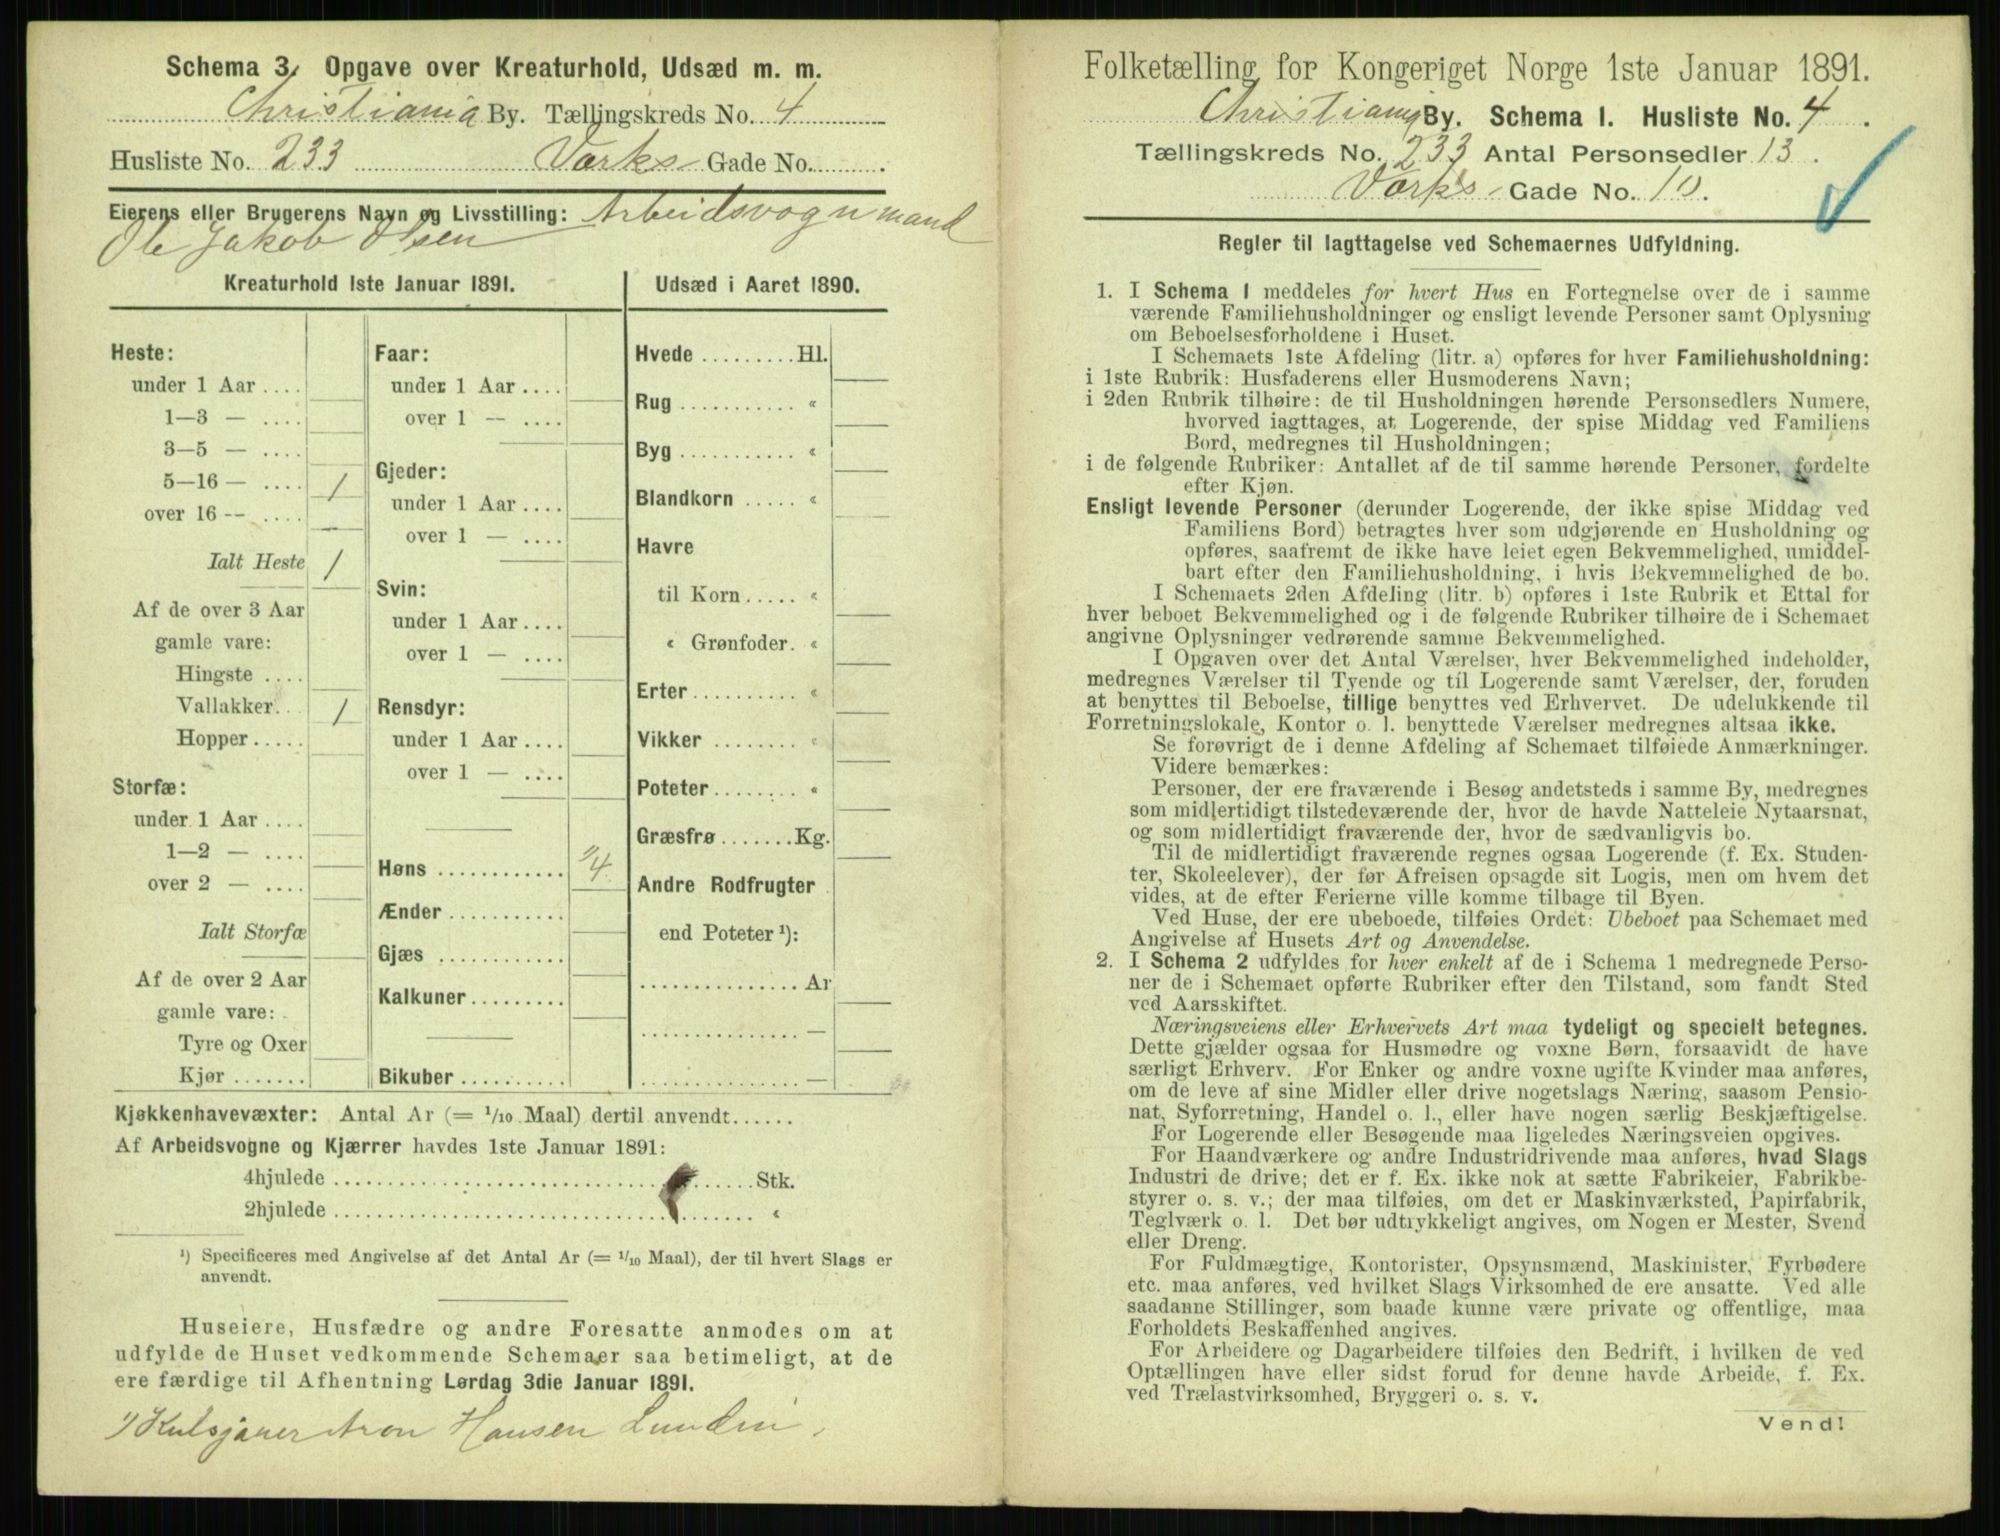 Schema 3. Opgave over Kreaturhold, Udsæd m. m.
Christiania By. Tællingskreds No. 4
Husliste No. 233 Værks Gade No.
Eierens eller Brugerens Navn og Livsstilling: Arbeidsvognmand
Ole Jakob Olsen
Kreaturhold 1ste Januar 1891.
Heste:
under 1 Aar ....
1—3 — ....
3—5 — ....
5—16 — .... 1
over 16 -- ....
Ialt Heste 1
Af de over 3 Aar
gamle vare:
Hingste ....
Vallakker.. 1
Hopper.....
Storfæ:
under 1 Aar ....
1—2 — ....
over 2 — ....
Ialt Storfæ
Af de over 2 Aar
gamle vare:
Tyre og Oxer
Kjør .......
Faar:
under 1 Aar ....
over 1 — ....
Gjeder:
under 1 Aar ....
over 1 — ....
Svin:
under 1 Aar ....
over 1 — ....
Rensdyr:
under 1 Aar ....
over 1 — ....
Høns ............ 1) 4
Ænder ...........
Gjæs ............
Kalkuner .........
Bikuber ..........
Udsæd i Aaret 1890.
Hvede .........Hl.
Rug ........... «
Byg ........... «
Blandkorn ..... «
Havre
til Korn ..... «
« Grønfoder. «
Erter.......... «
Vikker ........ «
Poteter ........ «
Græsfrø .......Kg.
Andre Rodfrugter
end Poteter ¹):
............... Ar
............... —
............... —
Kjøkkenhavevæxter: Antal Ar (= 1/10 Maal) dertil anvendt......
Af Arbeidsvogne og Kjærrer havdes 1ste Januar 1891:
4hjulede ........................................Stk.
2hjulede ........................................ «
¹) Specificeres med Angivelse af det Antal Ar (= 1/10 Maal), der til hvert Slags er
anvendt.
Huseiere, Husfædre og andre Foresatte anmodes om at
udfylde de Huset vedkommende Schemaer saa betimeligt, at de
ere færdige til Afhentning Lørdag 3die Januar 1891.
1) Kulsjouer Aron Hansen Lundin.
Folketælling for Kongeriget Norge 1ste Januar 1891.
Christiania By. Schema I. Husliste No. 4.
Tællingskreds No. 233 Antal Personsedler 13.
Værks Gade No. 10.
Regler til Iagttagelse ved Schemaernes Udfyldning.
1. I Schema I meddeles for hvert Hus en Fortegnelse over de i samme
værende Familiehusholdninger og ensligt levende Personer samt Oplysning
om Beboelsesforholdene i Huset.
I Schemaets 1ste Afdeling (litr. a) opføres for hver Familiehusholdning:
i 1ste Rubrik: Husfaderens eller Husmoderens Navn;
i 2den Rubrik tilhøire: de til Husholdningen hørende Personsedlers Numere,
hvorved iagttages, at Logerende, der spise Middag ved Familiens
Bord, medregnes til Husholdningen;
i de følgende Rubriker: Antallet af de til samme hørende Personer, fordelte
efter Kjøn.
Ensligt levende Personer (derunder Logerende, der ikke spise Middag ved
Familiens Bord) betragtes hver som udgjørende en Husholdning og
opføres, saafremt de ikke have leiet egen Bekvemmelighed, umiddel-
bart efter den Familiehusholdning, i hvis Bekvemmelighed de bo.
I Schemaets 2den Afdeling (litr. b) opføres i 1ste Rubrik et Ettal for
hver beboet Bekvemmelighed og i de følgende Rubriker tilhøire de i Schemaet
angivne Oplysninger vedrørende samme Bekvemmelighed.
I Opgaven over det Antal Værelser, hver Bekvemmelighed indeholder,
medregnes Værelser til Tyende og til Logerende samt Værelser, der, foruden
at benyttes til Beboelse, tillige benyttes ved Erhvervet. De udelukkende til
Forretningslokale, Kontor o. l. benyttede Værelser medregnes altsaa ikke.
Se forøvrigt de i denne Afdeling af Schemaet tilføiede Anmærkninger.
Videre bemærkes:
Personer, der ere fraværende i Besøg andetsteds i samme By, medregnes
som midlertidigt tilstedeværende der, hvor de havde Natteleie Nytaarsnat,
og som midlertidigt fraværende der, hvor de sædvanligvis bo.
Til de midlertidigt fraværende regnes ogsaa Logerende (f. Ex. Studen-
ter, Skoleelever), der før Afreisen opsagde sit Logis, men om hvem det
vides, at de efter Ferierne ville komme tilbage til Byen.
Ved Huse, der ere ubeboede, tilføies Ordet: Ubeboet paa Schemaet med
Angivelse af Husets Art og Anvendelse.
2. I Schema 2 udfyldes for hver enkelt af de i Schema 1 medregnede Perso-
ner de i Schemaet opførte Rubriker efter den Tilstand, som fandt Sted
ved Aarsskiftet.
Næringsveiens eller Erhvervets Art maa tydeligt og specielt betegnes.
Dette gjælder ogsaa for Husmødre og voxne Børn, forsaavidt de have
særligt Erhverv. For Enker og andre voxne ugifte Kvinder maa anføres,
om de leve af sine Midler eller drive nogetslags Næring, saasom Pensio-
nat, Syforretning, Handel o. l., eller have nogen særlig Beskjæftigelse.
For Logerende eller Besøgende maa ligeledes Næringsveien opgives.
For Haandværkere og andre Industridrivende maa anføres, hvad Slags
Industri de drive; det er f. Ex. ikke nok at sætte Fabrikeier, Fabrikbe-
styrer o. s. v.; der maa tilføies, om det er Maskinværksted, Papirfabrik,
Teglværk o. l. Det bør udtrykkeligt angives, om Nogen er Mester, Svend
eller Dreng.
For Fuldmægtige, Kontorister, Opsynsmænd, Maskinister, Fyrbødere
etc. maa anføres, ved hvilket Slags Virksomhed de ere ansatte. Ved alle
saadanne Stillinger, som baade kunne være private og offentlige, maa
Forholdets Beskaffenhed angives.
For Arbeidere og Dagarbeidere tilføies den Bedrift, i hvilken de ved
Optællingen have eller sidst forud for denne havde Arbeide, f. Ex.
ved Trælastvirksomhed, Bryggeri o. s. v.
Vend!